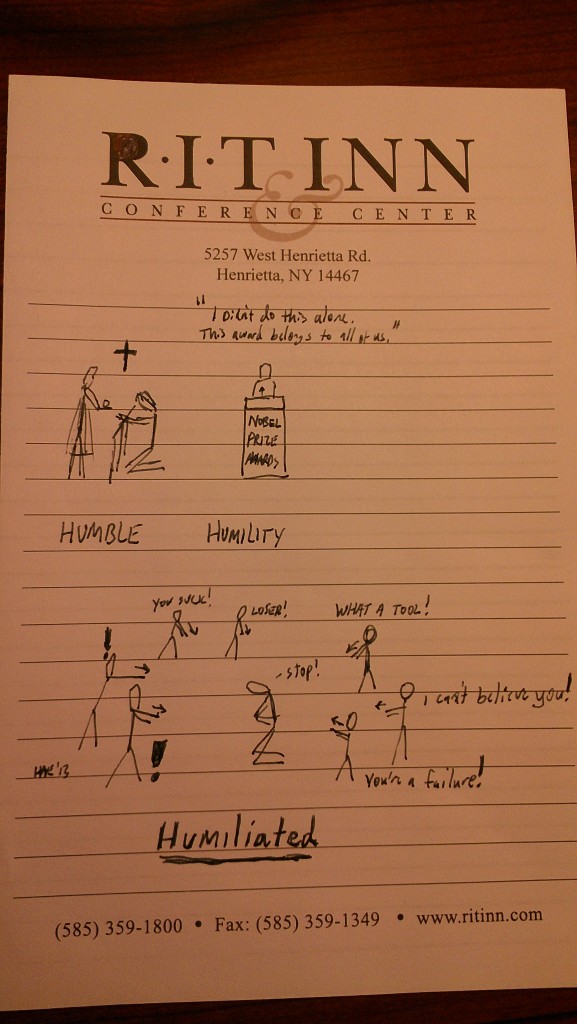 R·I·T INN
&
CONFERENCE CENTER
5257 West Henrietta Rd.
Henrietta, NY 14467
"I didn't do this alone.
This award belongs to all of us."
NOBEL
PRIZE
AWARDS
HUMBLE HUMILITY
YOU SUCK! LOSER! WHAT A TOOL!
!
STOP!
I can't believe you!
!
You're a failure!
Humiliated
(585) 359-1800 • Fax: (585) 359-1349 • www.ritinn.com